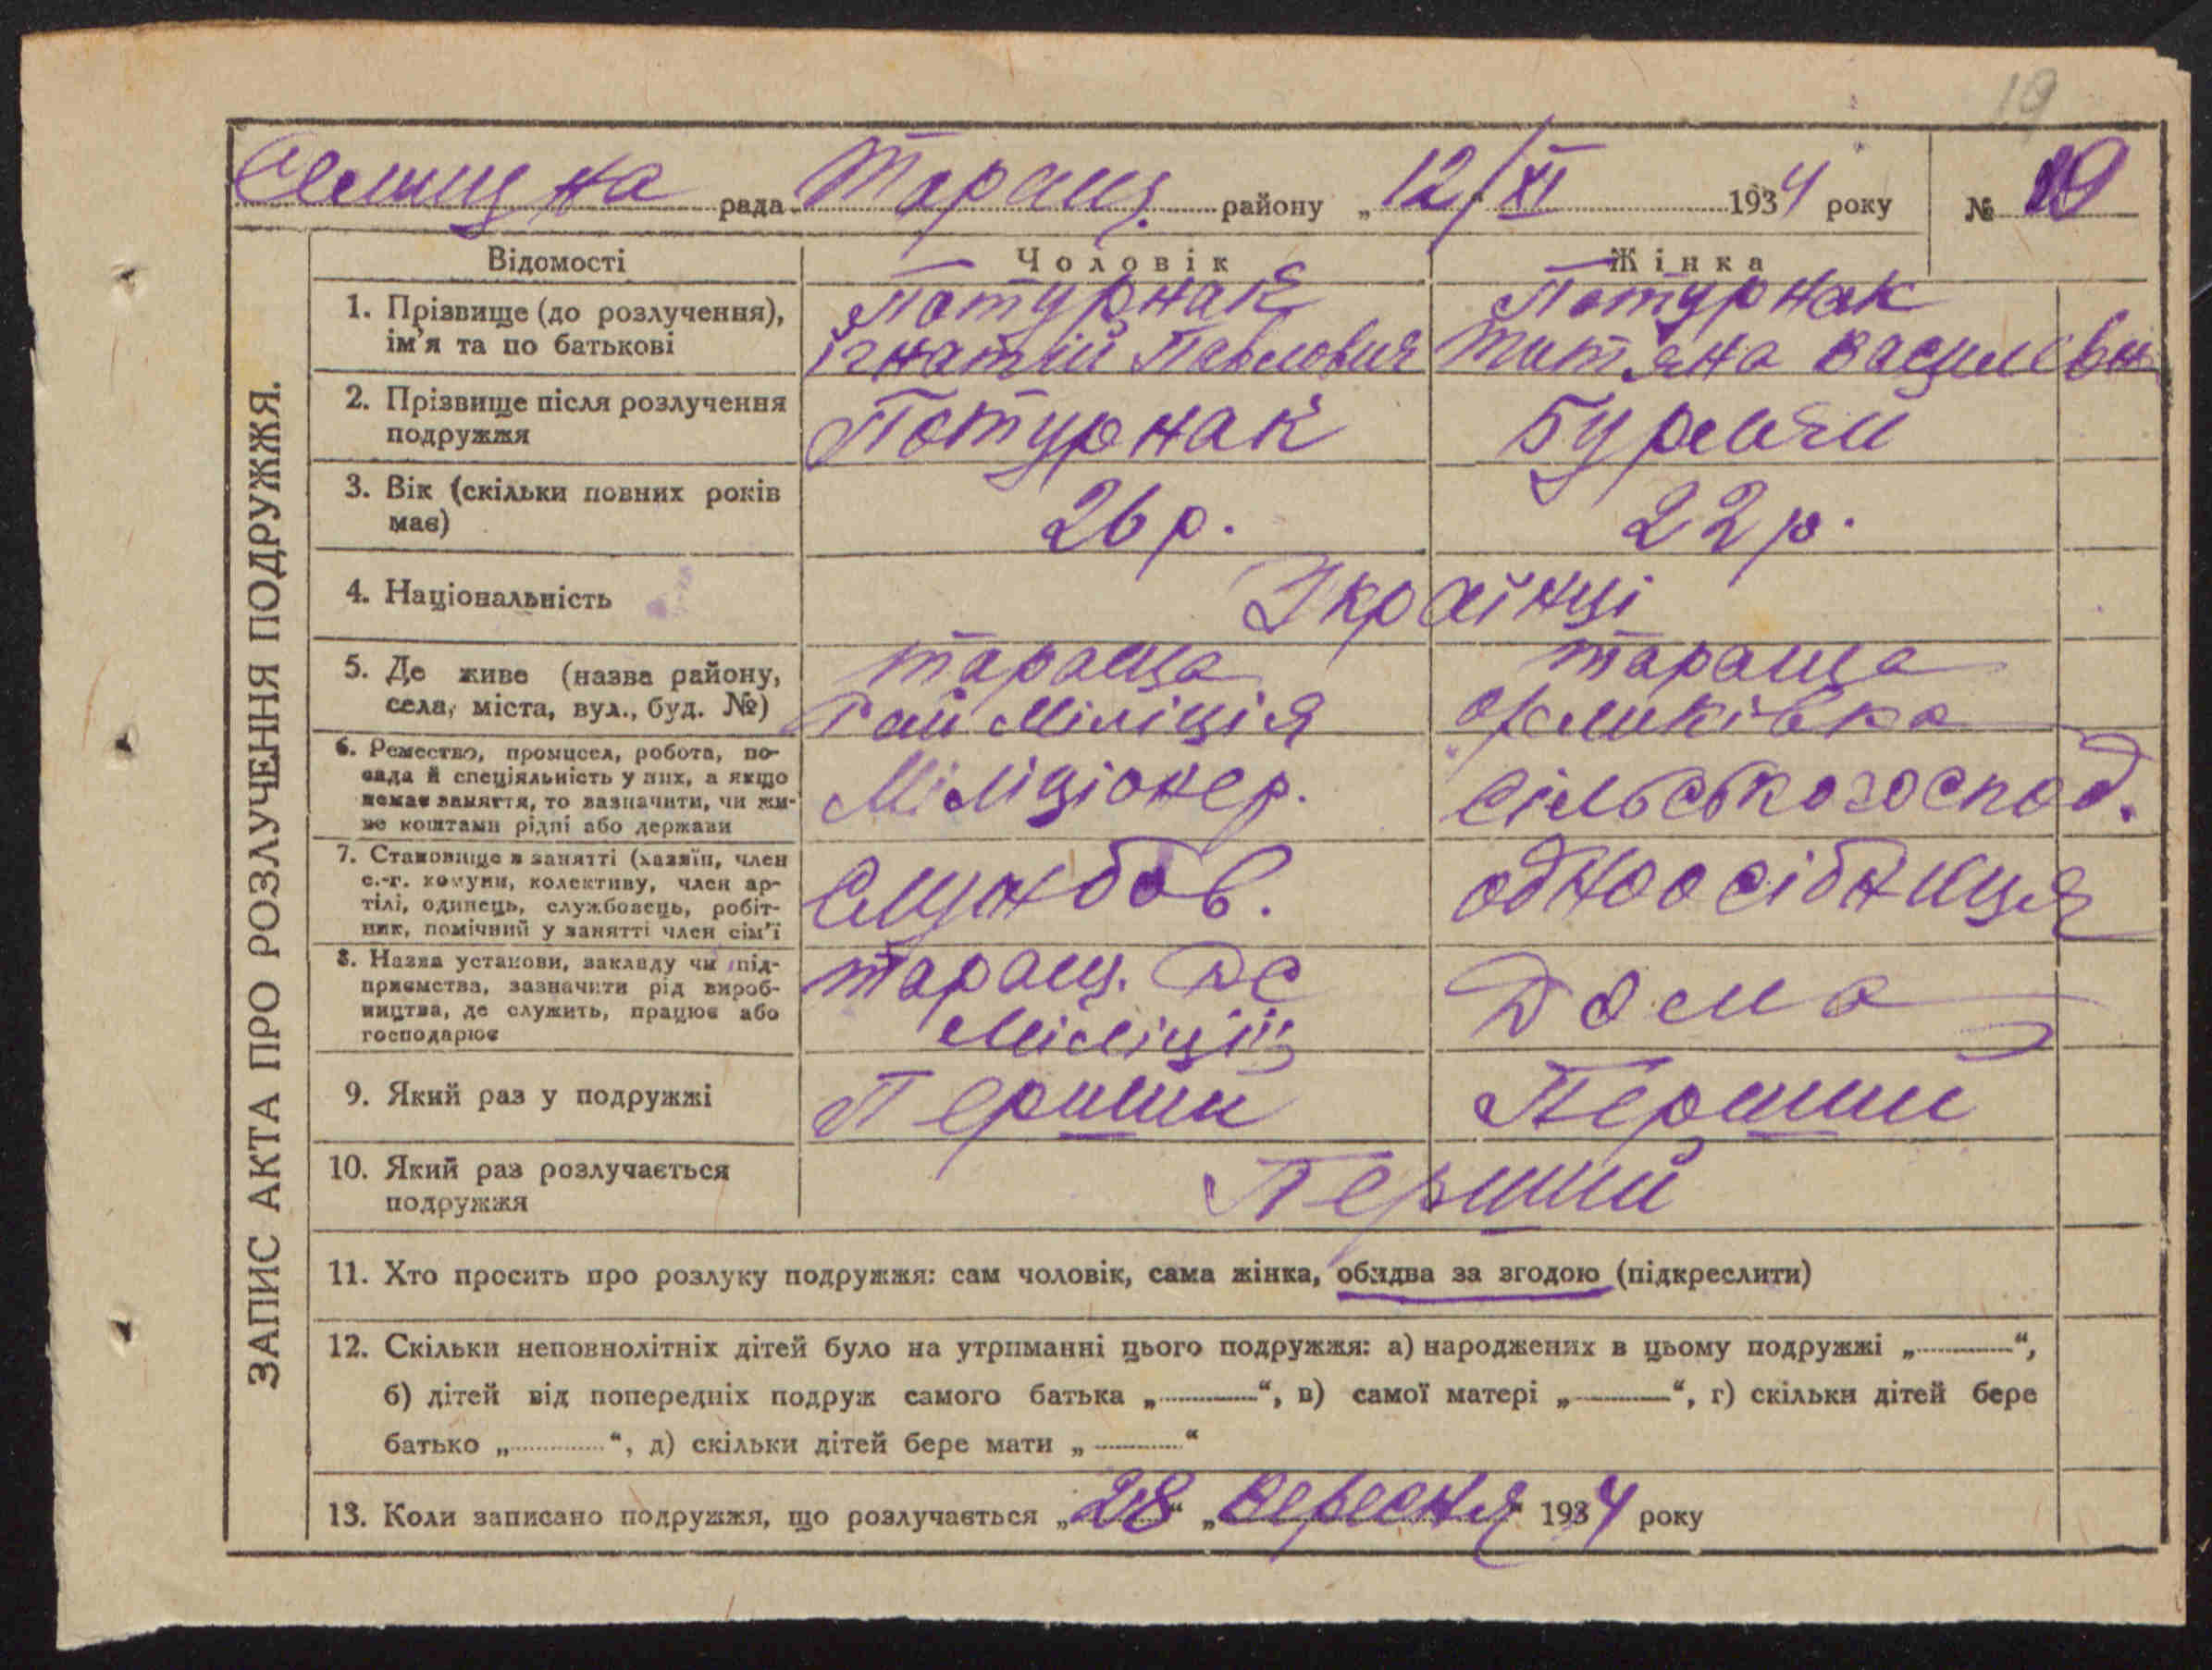 19
Селищна рада Таращ. району „12/XI 1934 року № 19
ЗАПИС АКТА ПРО РОЗЛУЧЕННЯ ПОДРУЖЖЯ.
Відомості Чоловік Жінка
1. Прізвище (до розлучення), ім'я та по батькові
Потурнак
Ігнатій Павлович
Потурнак
Титяна Василевн
2. Прізвище після розлучення подружжя
Потурнак
3. Вік (скільки повних років має)
26 р.
22 р.
4. Національність
Українці
5. Де живе (назва району, села, міста, вул., буд. №)
Тараща
Рай Міліція
Тараща
6. Ремество, промисел, робота, по-
сада й спеціяльність у них, а якщо
немає заняття, то зазначити, чи жи-
ве коштами рідні або держави
Міліціонер.
Сільськогоспод.
7. Становище в занятті (хазяїн, член
с.-г. комуни, колективу, член ар-
тілі, одинець, службовець, робіт-
ник, помічний у занятті член сім'ї
Службов.
одноосібниця
8. Назва установи, закладу чи під-
приємства, зазначити рід вироб-
ництва, де служить, працює або
господарює
Таращ.
Міліції
Дома
9. Який раз у подружжі
Перший
Перший
10. Який раз розлучається
подружжя
Перший
11. Хто просить про розлуку подружжя: сам чоловік, сама жінка, обидва за згодою (підкреслити)
12. Скільки неповнолітніх дітей було на утриманні цього подружжя: а) народжених в цьому подружжі „—“,
б) дітей від попередніх подруж самого батька „—“, в) самої матері „—“, г) скільки дітей бере
батько „.............“, д) скільки дітей бере мати „—“
13. Коли записано подружжя, що розлучається „28“ „Вересня“ 1934 року